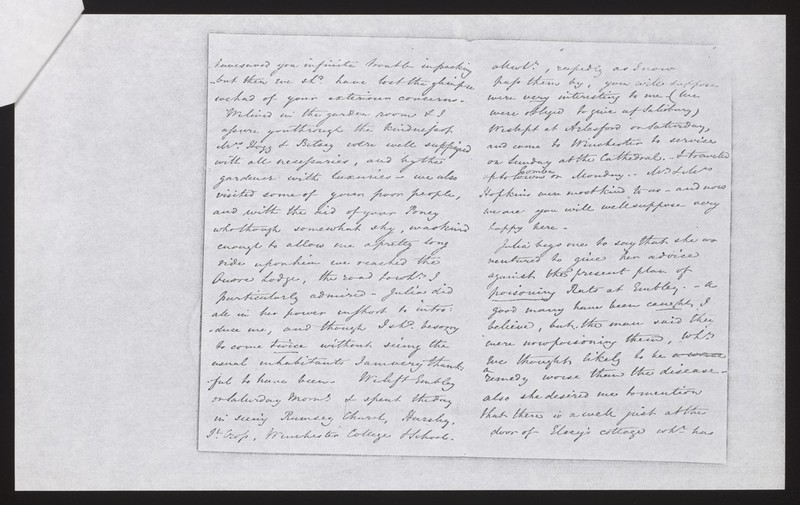 have saved you infinite trouble in packing
but then we shd. have lost the glimpse
we had of your exterior concerns.
We lived in the garden room & I
assure you through the kindness of
Mrs. Hogg & Betsey were well supplied
with all necessaries, and by the
gardener with luxuries - we also
visited some of your poor people,
and with the aid of your Poney
who though somewhat shy, was kind
enough to allow me a pretty long
ride upon him we reached the
Lodge, the road to wh. I
particularly admired - Julia did
all in her power in short to intro:
-duce me, and though I shd. be sorry
to come twice without seeing the
usual inhabitants I am very thank
-ful to have been. We left Embley
on Saturday Morng. & spent the day
in seeing Rumsey Church, Hursley,
St. Cross, Winchester College & School.
all wh., as I now
pass them by, you will suppose
were very interesting to me (we
were obliged to give up Salisbury)
We slept at Alresford on Saturday,
and came to Winchester to service
on Sunday at the Cathedral. - & traveled
to Combe on Monday - Mr. & Mrs.
Hopkins were most kind to us - and now
we are you will well suppose very
happy here -
Julia begs me to say that she
ventured to give her advice
against the present plan of
poisoning Rats at Embley - a
good many have been caught, I
believe, but the man said they
were now poisoning them, wh.
we thought likely to be
a remedy worse than the disease -
also she desired me to mention
that there is a well just at the
door of cottage wh. has